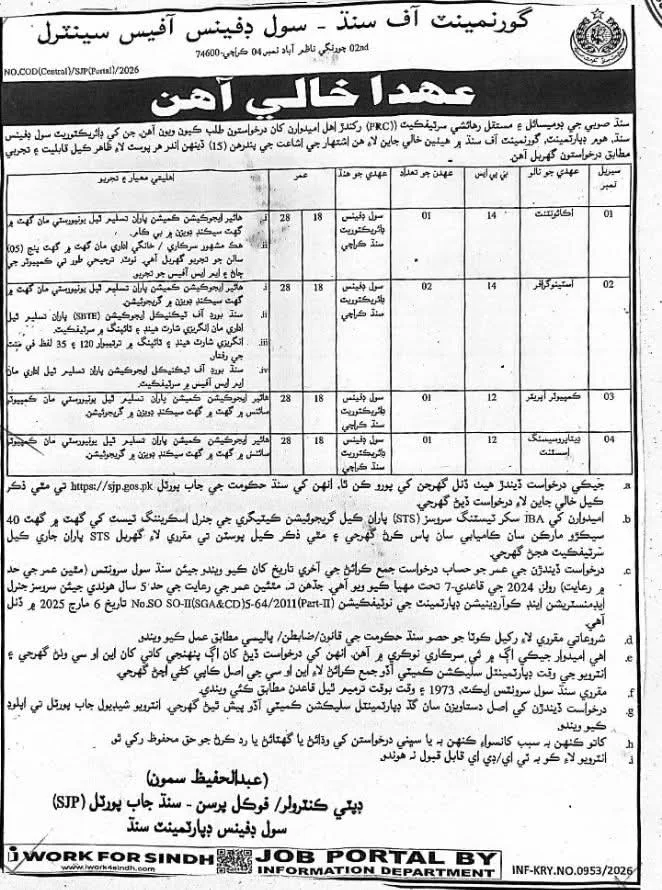 گورنمينٽ آف سنڌ - سول ڊفينس آفيس سينٽرل
02nd چورنگي ناظم آباد نمبر 04 ڪراچي-74600
NO.COD(Central)/SJP(Portal)/2026
عهدا خالي آهن
سنڌ صوبي جي ڊوميسائل ۽ مستقل رهائشي سرٽيفڪيٽ (PRC) رکندڙ اهل اميدوارن کان درخواستون طلب ڪيون ويون آهن، جن کي ڊائريڪٽوريٽ سول ڊفينس
سنڌ، هوم ڊپارٽمينٽ، گورنمينٽ آف سنڌ ۾ هيٺين خالي جاين لاءِ هن اشتهار جي اشاعت جي پندرهن (15) ڏينهن اندر هر پوسٽ لاءِ ظاهر ڪيل قابليت ۽ تجربي
مطابق درخواستون گهربل آهن.
سيريل نمبر عهدي جو نالو بي پي ايس عهدن جو تعداد عهدي جو هنڌ عمر اهليتي معيار ۽ تجربو
01 اڪائونٽنٽ 14 01 سول ڊفينس ڊائريڪٽوريٽ سنڌ ڪراچي 18 28
i. هائير ايجوڪيشن ڪميشن پاران تسليم ٿيل يونيورسٽي مان گهٽ ۾
گهٽ سيڪنڊ ڊويزن ۾ بي ڪام.
ii. هڪ مشهور سرڪاري / خانگي اداري مان گهٽ ۾ گهٽ پنج (05)
سالن جو تجربو گهربل آهي. نوٽ، ترجيحي طور تي ڪمپيوٽر جي
ڄاڻ ۽ ايم ايس آفيس جو تجربو
02 اسٽينوگرافر 14 02 سول ڊفينس ڊائريڪٽوريٽ سنڌ ڪراچي 18 28
i. هائير ايجوڪيشن ڪميشن پاران تسليم ٿيل يونيورسٽي مان گهٽ ۾
گهٽ سيڪنڊ ڊويزن ۾ گريجوئيشن.
ii. سنڌ بورڊ آف ٽيڪنيڪل ايجوڪيشن (SBTE) پاران تسليم ٿيل
اداري مان انگريزي شارٽ هينڊ ۽ ٽائپنگ ۾ سرٽيفڪيٽ.
iii. انگريزي شارٽ هينڊ ۽ ٽائپنگ ۾ ترتيبوار 120 ۽ 35 لفظ في منٽ
جي رفتار.
iv. سنڌ بورڊ آف ٽيڪنيڪل ايجوڪيشن پاران تسليم ٿيل اداري مان
ايم ايس آفيس ۾ سرٽيفڪيٽ.
03 ڪمپيوٽر آپريٽر 12 01 سول ڊفينس ڊائريڪٽوريٽ سنڌ ڪراچي 18 28
هائير ايجوڪيشن ڪميشن پاران تسليم ٿيل يونيورسٽي مان ڪمپيوٽر
سائنس ۾ گهٽ ۾ گهٽ سيڪنڊ ڊويزن ۾ گريجوئيشن.
04 ڊيٽا پروسيسنگ اسسٽنٽ 12 01 سول ڊفينس ڊائريڪٽوريٽ سنڌ ڪراچي 18 28
هائير ايجوڪيشن ڪميشن پاران تسليم ٿيل يونيورسٽي مان ڪمپيوٽر
سائنس ۾ گهٽ ۾ گهٽ سيڪنڊ ڊويزن ۾ گريجوئيشن.
a. جيڪي درخواست ڏيندڙ هيٺ ڏنل گهرجن کي پورو ڪن ٿا، انهن کي سنڌ حڪومت جي جاب پورٽل https://sjp.gos.pk تي مٿي ذڪر
ڪيل خالي جاين لاءِ درخواست ڏيڻ گهرجي.
b. اميدوارن کي IBA سکر ٽيسٽنگ سروسز (STS) پاران ڪيل گريجوئيشن ڪيٽيگري جي جنرل اسڪريننگ ٽيسٽ کي گهٽ ۾ گهٽ 40
سيڪڙو مارڪن سان ڪاميابي سان پاس ڪرڻ گهرجي ۽ مٿي ذڪر ڪيل پوسٽن تي مقرري لاءِ گهربل STS پاران جاري ڪيل
سرٽيفڪيٽ هجڻ گهرجي.
c. درخواست ڏيندڙن جي عمر جو حساب درخواست جمع ڪرائڻ جي آخري تاريخ کان ڪيو ويندو جيئن سنڌ سول سرونٽس (مٿين عمر جي حد
۾ رعايت) رولز 2024 جي قاعدي-7 تحت مهيا ڪيو ويو آهي. جڏهن ته، مٿئين عمر جي رعايت جي حد 5 سال هوندي جيئن سروسز جنرل
ايڊمنسٽريشن اينڊ ڪوآرڊينيشن ڊپارٽمينٽ جي نوٽيفڪيشن No.SO SO-II(SGA&CD)5-64/2011(Part-II) تاريخ 6 مارچ 2025 ۾ ڏنل
آهي.
d. شروعاتي مقرري لاءِ رکيل ڪوٽا جو حصو سنڌ حڪومت جي قانون/ضابطن/ پاليسي مطابق عمل ڪيو ويندو.
e. اهي اميدوار جيڪي اڳ ۾ ئي سرڪاري نوڪري ۾ آهن، انهن کي درخواست ڏيڻ کان اڳ پنهنجي کاتي کان اين او سي وٺڻ گهرجي ۽
انٽرويو جي وقت ڊپارٽمينٽل سليڪشن ڪميٽي آڏو جمع ڪرائڻ لاءِ اين او سي جي اصل ڪاپي کڻي اچڻ گهرجي.
f. مقرري سنڌ سول سرونٽس ايڪٽ، 1973 ۽ وقت بوقت ترميم ٿيل قاعدن مطابق ڪئي ويندي.
g. درخواست ڏيندڙن کي اصل دستاويزن سان گڏ ڊپارٽمينٽل سليڪشن ڪميٽي آڏو پيش ٿيڻ گهرجي. انٽرويو شيڊيول جاب پورٽل تي اپلوڊ
ڪيو ويندو.
h. کاتو ڪنهن به سبب کانسواءِ ڪنهن به يا سڀني درخواستن کي وڌائڻ يا گهٽائڻ يا رد ڪرڻ جو حق محفوظ رکي ٿو.
i. انٽرويو لاءِ ڪو به ٽي اي/ڊي اي قابل قبول نه هوندو.
(عبدالحفيظ سمون)
ڊپٽي ڪنٽرولر/ فوڪل پرسن - سنڌ جاب پورٽل (SJP)
سول ڊفينس ڊپارٽمينٽ سنڌ
i WORK FOR SINDH
www.iwork4sindh.com
JOB PORTAL BY
INFORMATION DEPARTMENT
INF-KRY.NO.0953/2026